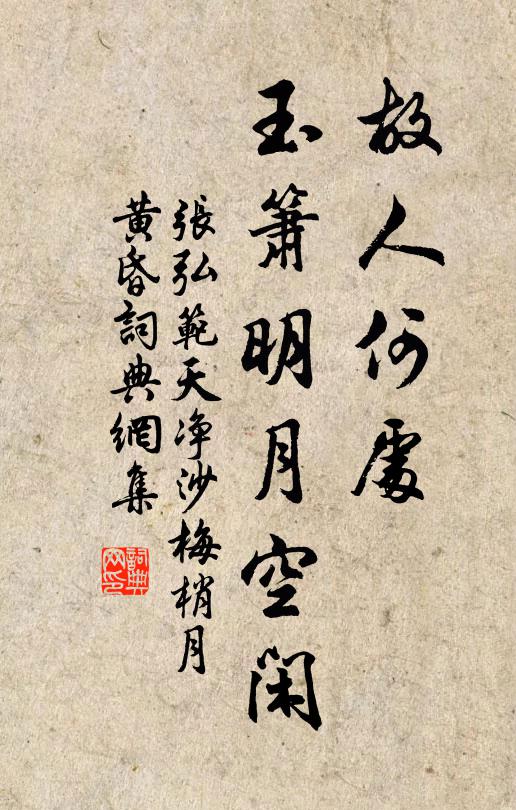 故人何處
玉簫明月空閑
張弘範天净沙梅梢月
黃昏詞典網集
詞典网印